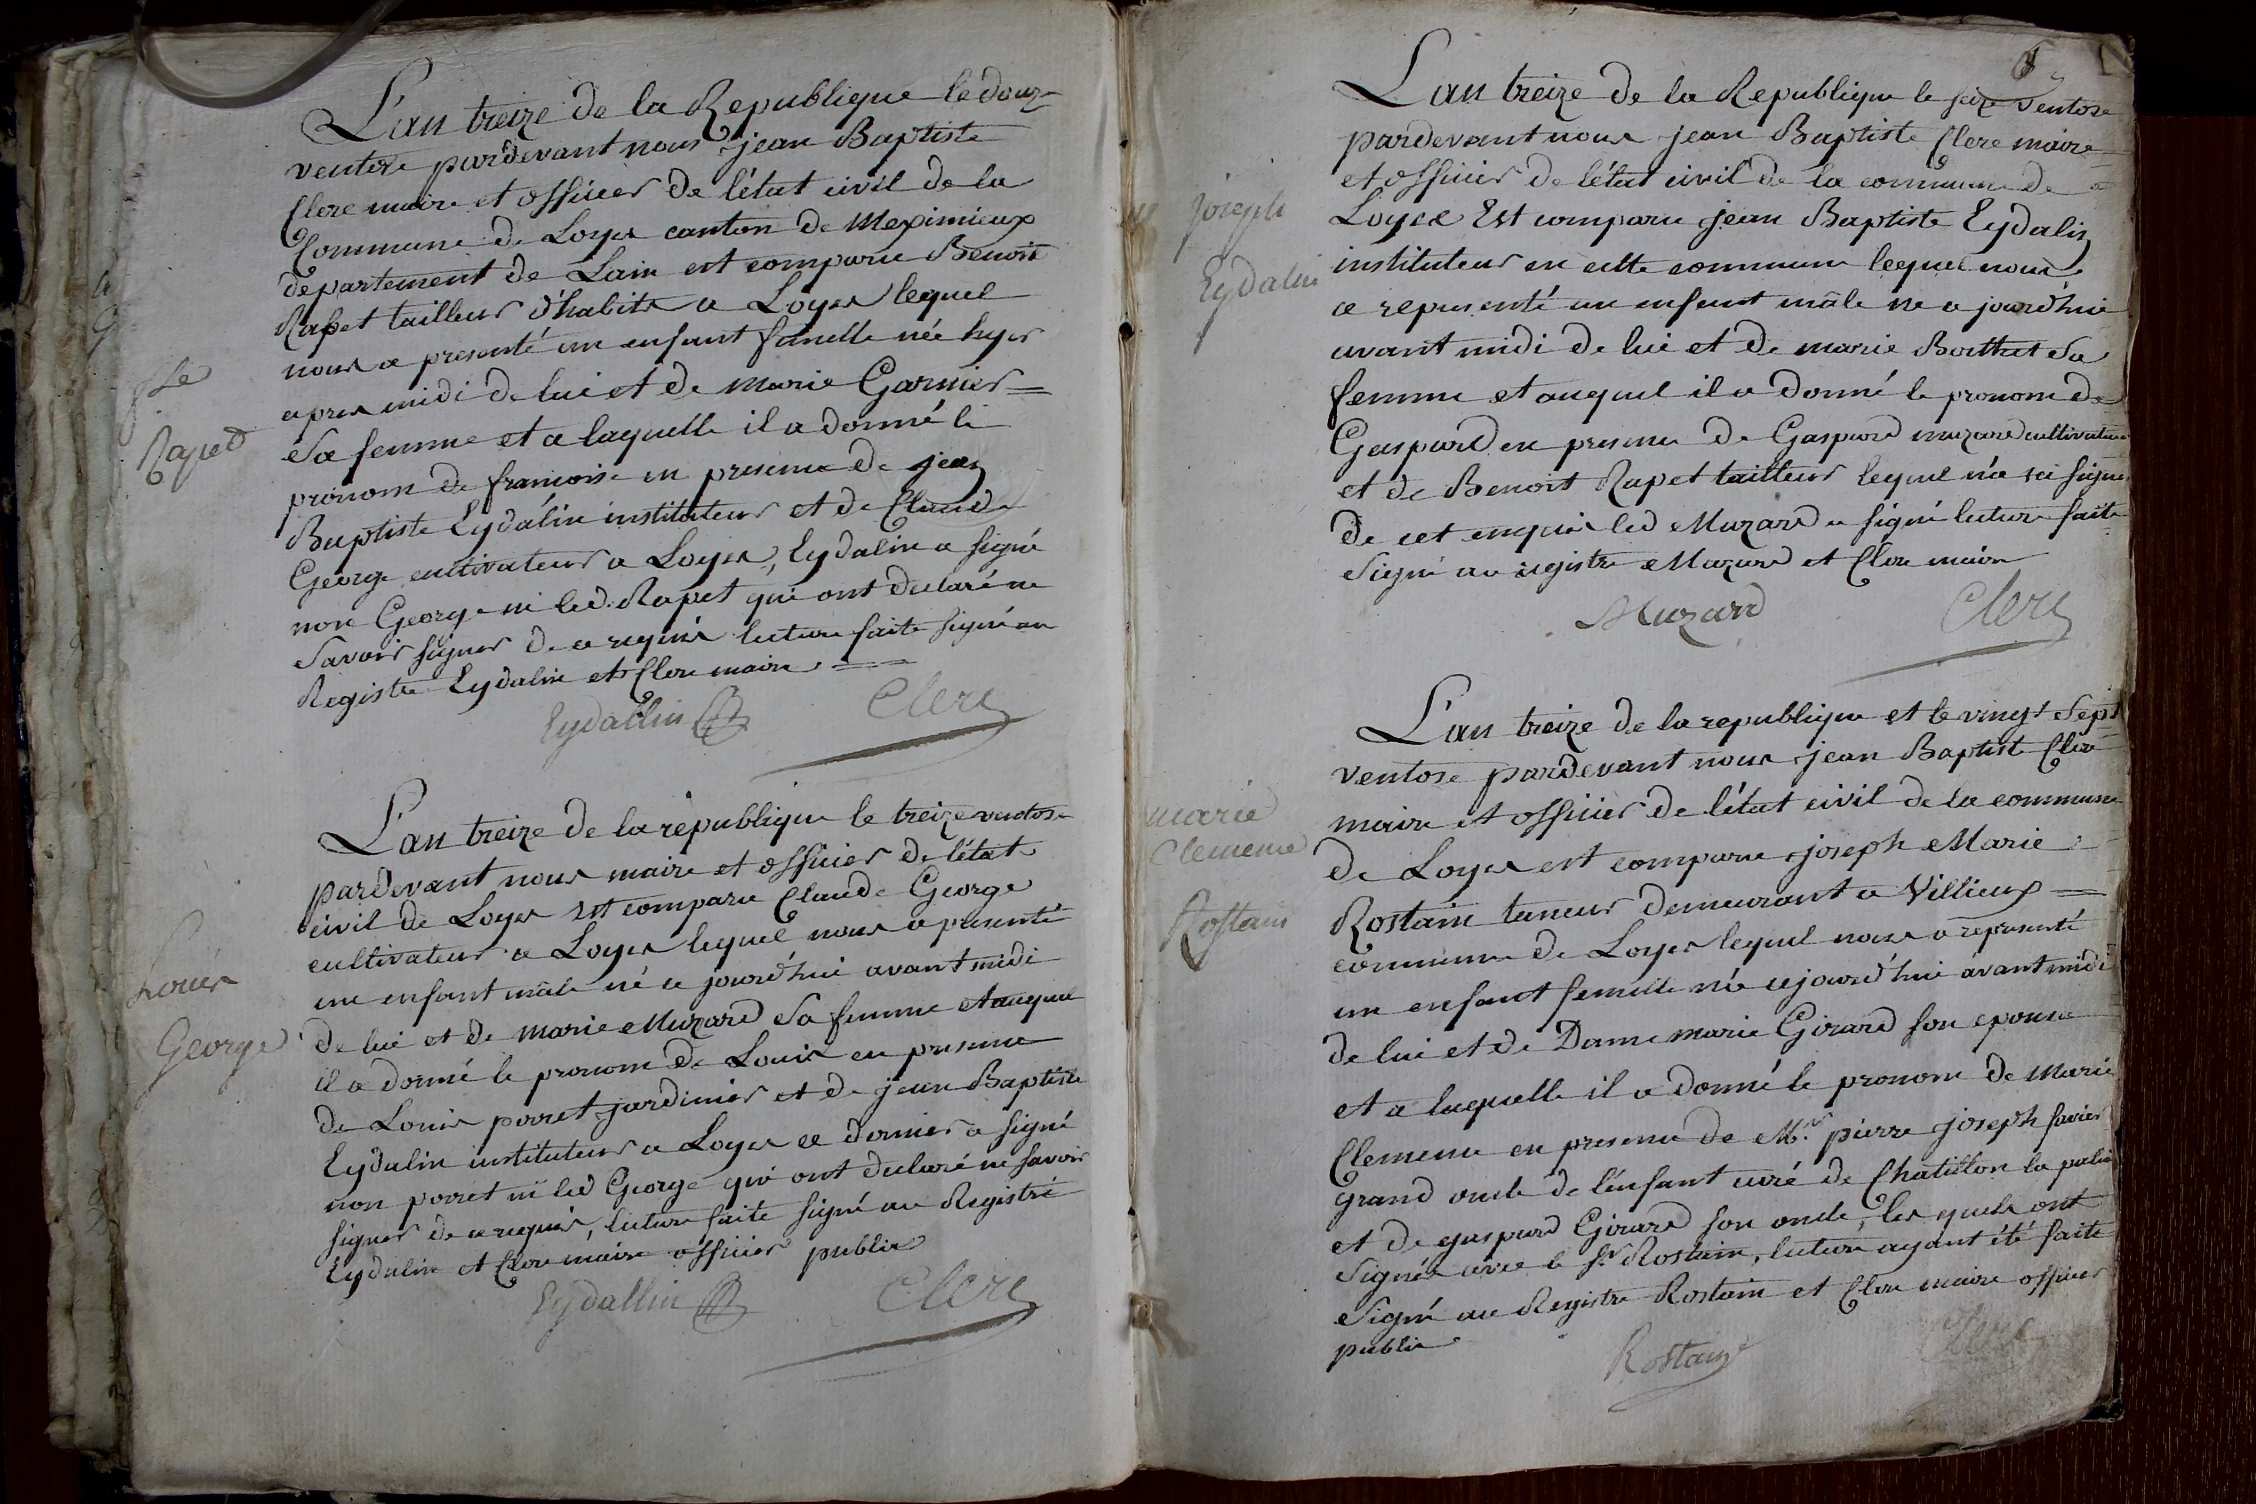 fse
Rapet
L'an treize de la Republique le douze
ventose pardevant nous jean Baptiste
Clerc maire et officier de l'état civil de la
Commune de Loyes canton de Meximieux
departement de Lain est comparu Benoit
Rapet tailleur d'habits a Loyes lequel
nous a presenté un enfant femelle née hyer
apres midi de lui et de marie Garnier =
Sa femme et a laquelle il a donné le
pronom de francoise en presence de jean
Baptiste Eydalin instituteur et de Claude
George cultivateur a Loyes, Eydalin a signé
non George ni led. Rapet qui ont declaré ne
Savoir signer de ce requis lecture faite signé au
Registre Eydalin et Clerc maire
Eydallin Clerc
Louis
George
L'an treize de la republique le treize ventose
pardevant nous maire et officier de l'état
civil de Loyes est comparu Claude George
cultivateur a Loyes lequel nous a presenté
un enfant mâle né ce jourd'hui avant midi
de lui et de marie Muzard Sa femme et auquel
il a donné le pronom de Louis en presence
de Louis porret jardinier et de jean Baptiste
Eydalin instituteur a Loyes ce dernier a signé
non porret ni led George qui ont declaré ne savoir
signer de ce requis, lecture faite signé au Registre
Eydalin et Clerc maire officier public
Eydallin Clerc
joseph
Eydalin
L'an treize de la Republique le seize ventose
pardevant nous jean Baptiste Clerc maire
et officier de l'état civil de la commune de
Loyes Est comparu jean Baptiste Eydalin
instituteur en cette commune lequel nous
a representé un enfant mâle né a jourd'hui
avant midi de lui et de marie Berthet Sa
femme et auquel il a donné le pronom de
Gaspard en presence de Gaspard muzard cultivateur
et de Benoit Rapet tailleur lequel n'a sçu signer
de cet enquis led Muzard a signé lecture faite
Signé au registre Muzard et Clerc maire
Muzard Clerc
marie
Clemence
Rostain
L'an treize de la republique et le vingt Sept
ventose pardevant nous jean Baptiste Clerc
maire et officier de l'état civil de la commune
de Loyes est comparu joseph Marie
Rostain taneur demeurant a Villieux =
commune de Loyes lequel nous a representé
un enfant femelle née cejourd'hui avant midi
de lui et de Dame marie Girard son epouse
et a laquelle il a donné le pronom de Marie
Clemence en presence de Mr. pierre joseph favier
grand oncle de l'enfant curé de Chatillon la palud
et de gaspard Girard son oncle, les quels ont
Signés avec le Sr. Rostain, lecture ayant été faite
Signé au Registre Rostain et Clerc maire officier
public
Rostain Clerc